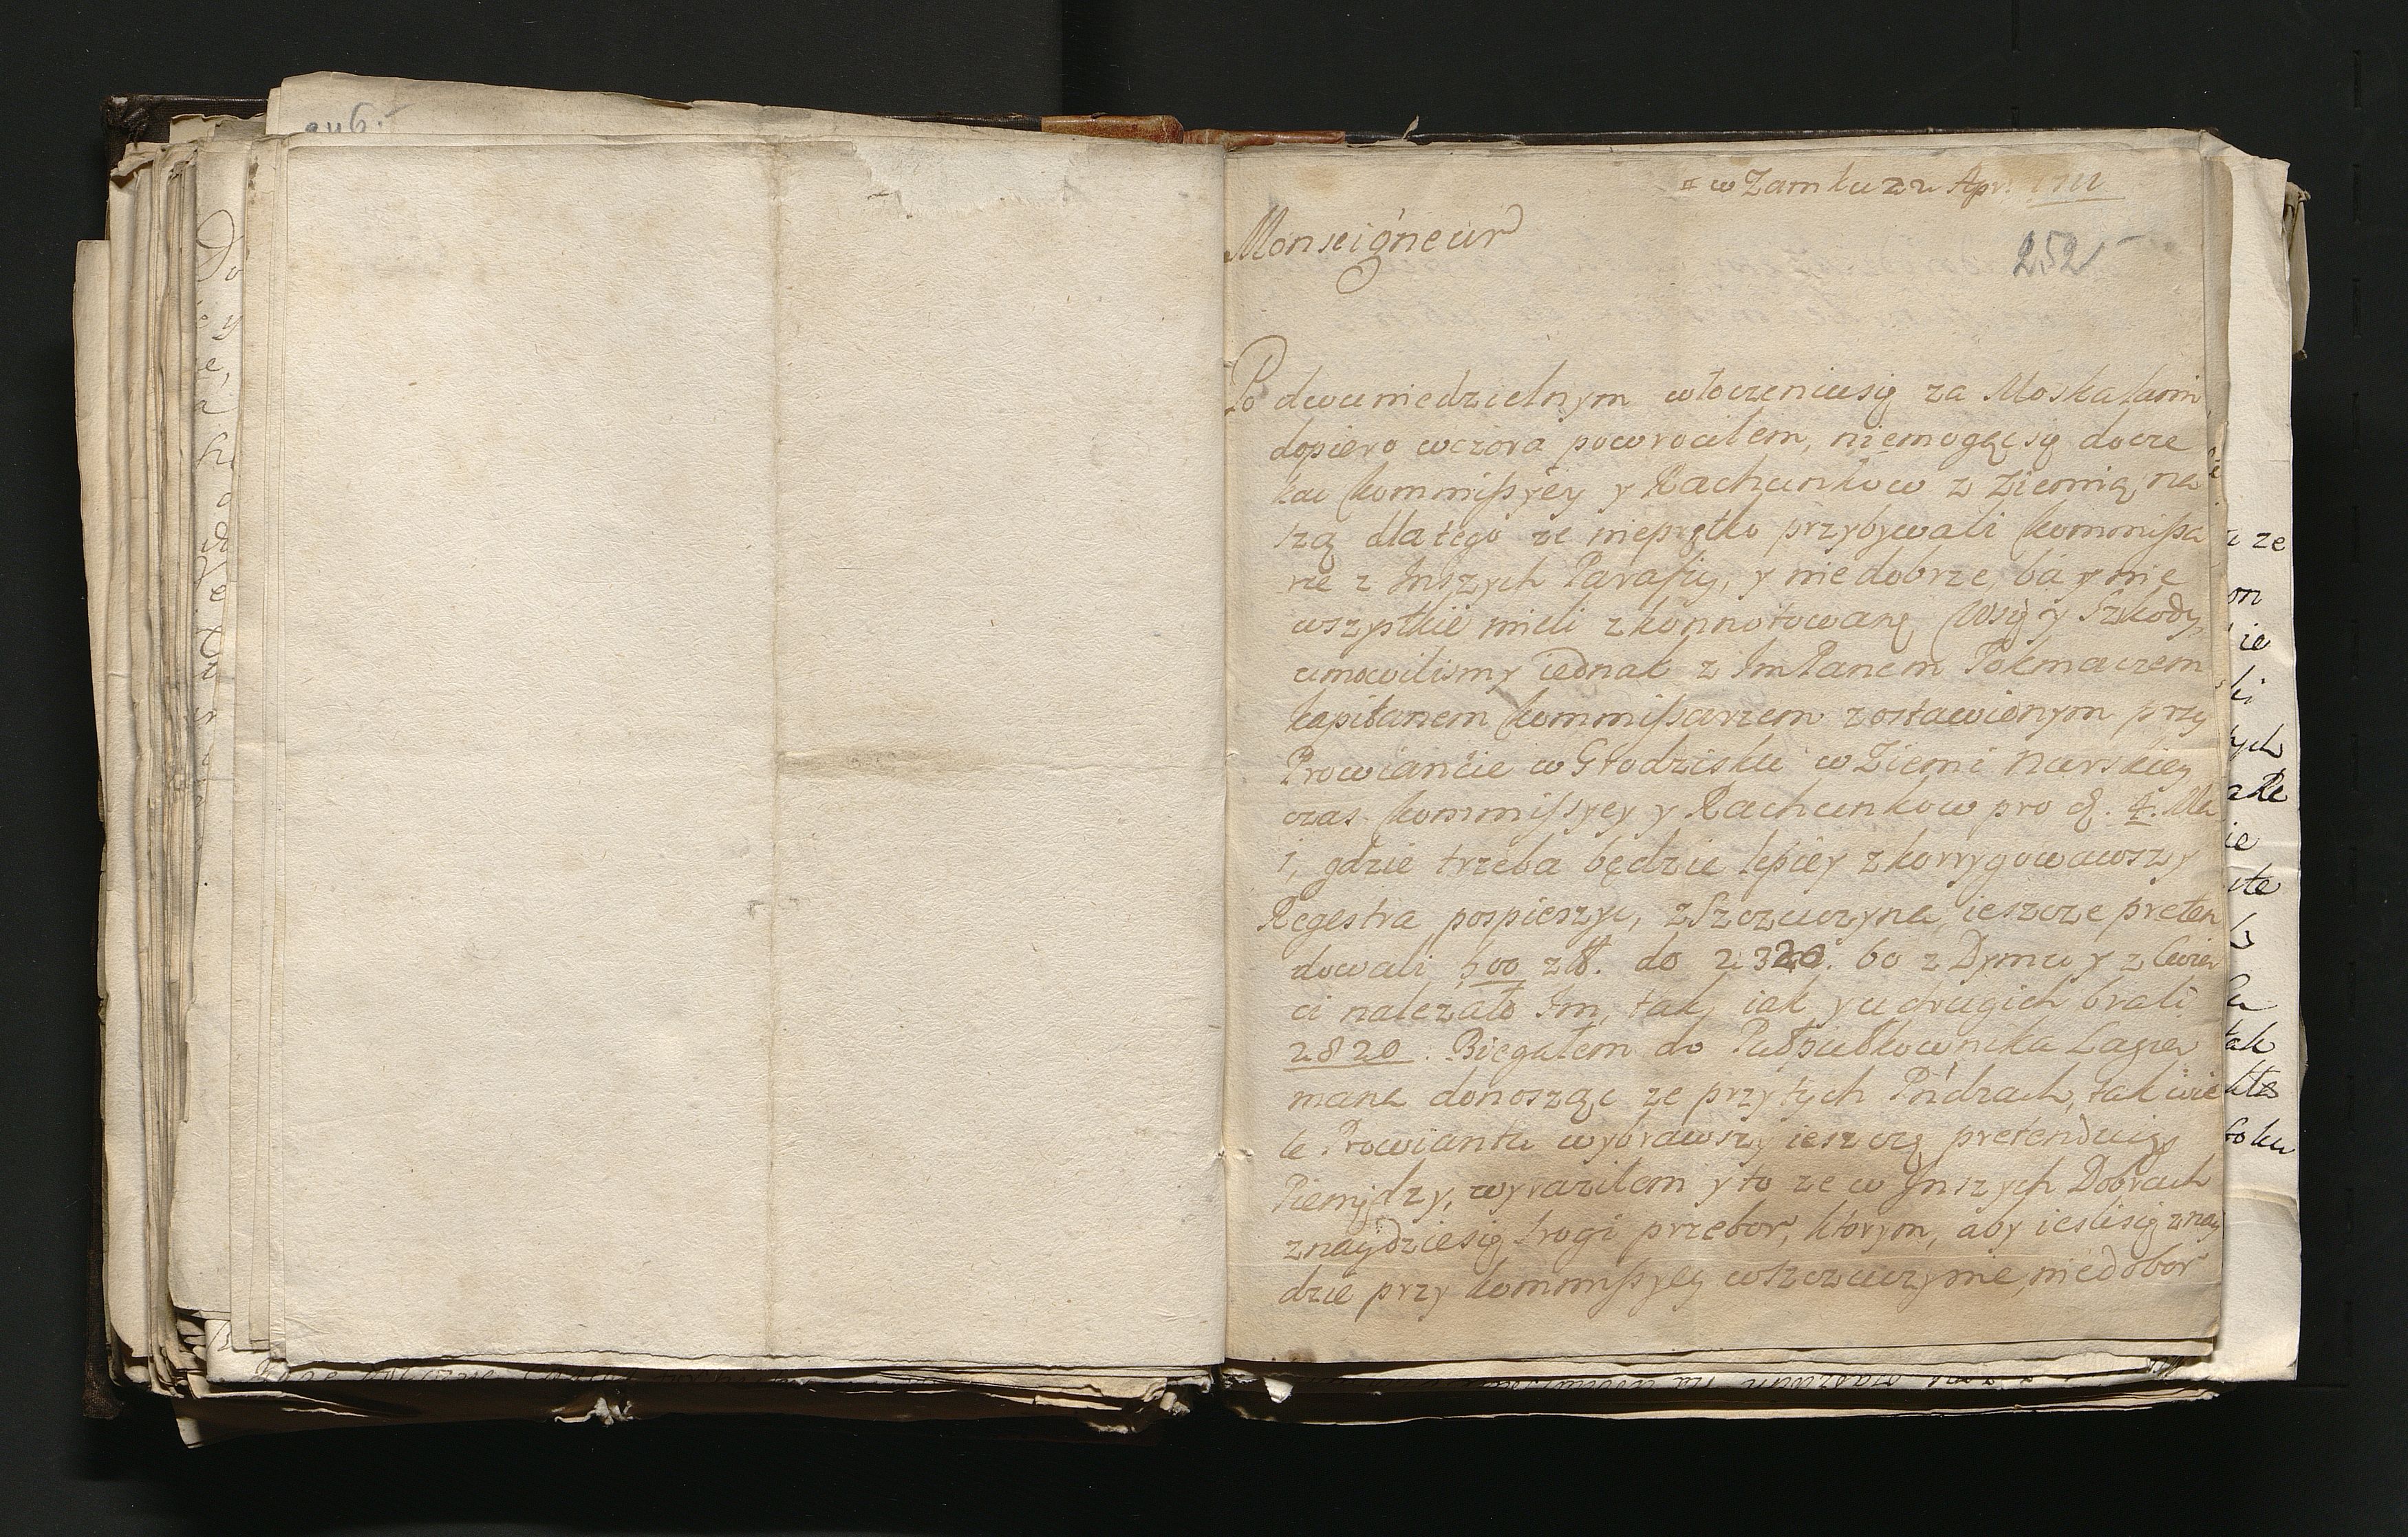 246.
w Zamku 22 Apr. 1711
Monseigneur
252
Po dwuniedzielnym włoczeniusię za Moskalami
dopiero wczora powrociłem, niemogącsię docze
kac kommissyey y Rachunkow z Ziemią na
szą dlatego ze nieprętko przybywali kommissa
rze z Inszych Parafiy, y nie dobrze, ba y nie
wszystkie mieli zkonnotowane Wsię y Szkody,
umowilismy iednak z ImPanem Tołmaczem
kapitanem kommissarzem zostawionym przy
Prowiancie w Grodzisku w Ziemi Nurskiey
czas kommissyey y Rachunkow pro d. 4. Ma
i, gdzie trzeba będzie lepiey zkorrygowawszy
Regestra pospieszyc, z Szczuczyna ieszcze preten
dowali 500 zł. do 2320. bo z Dymu y z Cwier
ci nalezało Im, tak, iak y u drugich brali
2820. Biegałem do Pułpułkownika Lagre
mana donosząc ze przy tych Pńdzach, tak wie
le Prowiantu wybrawszy ieszczę pretenduią
Pieniędzy, wyraziłem y to ze w Inszych Dobrach
znaydziesię srogi przebor, ktorym, aby ieslisię znay
dzie przy kommissyey w Szczuczynie, niedobor